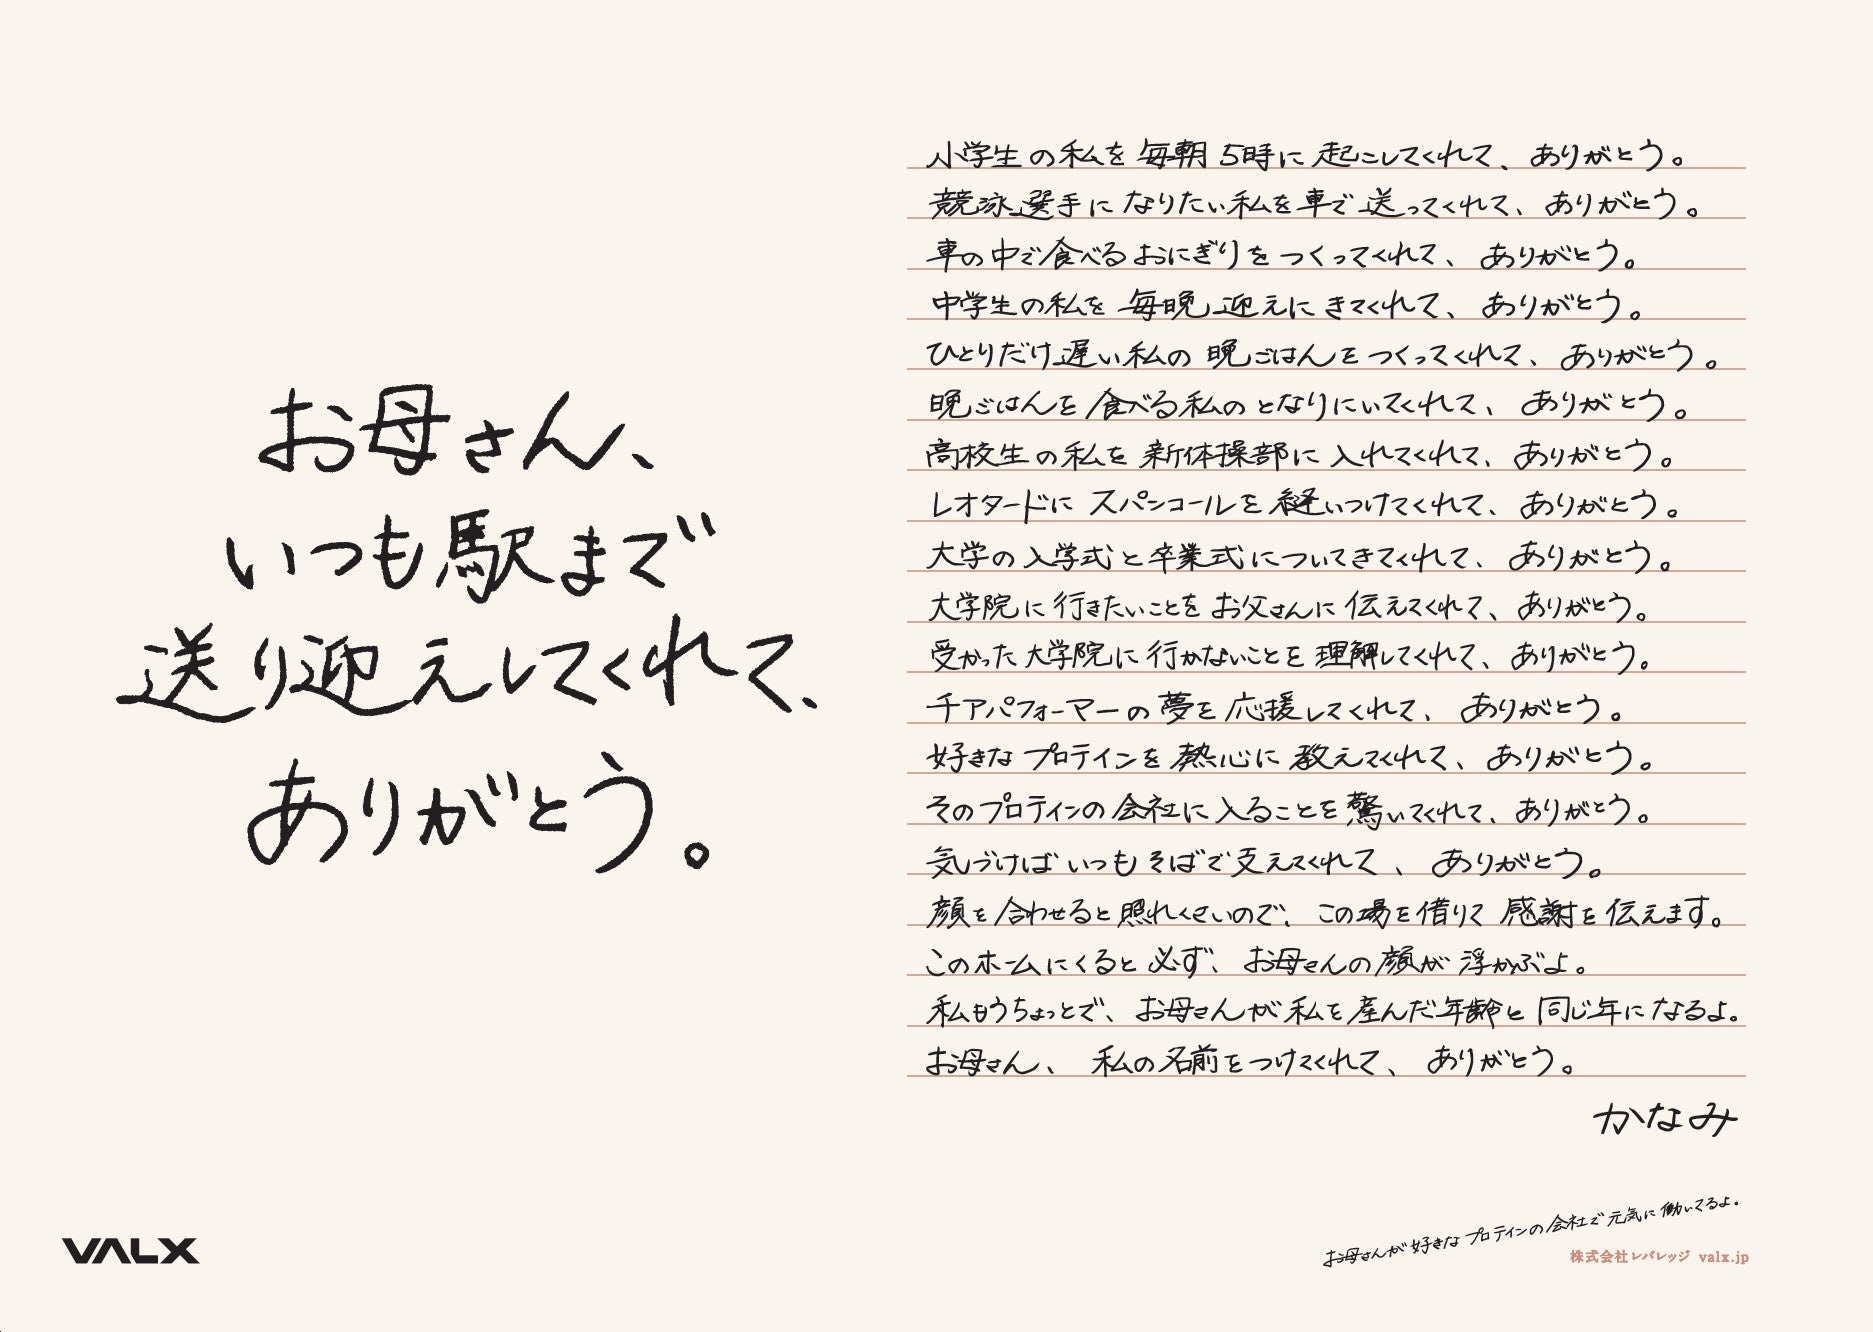 お母さん、
いつも駅まで
送り迎えしてくれて、
ありがとう。
小学生の私を毎朝5時に起こしてくれて、ありがとう。
競泳選手になりたい私を車で送ってくれて、ありがとう。
車の中で食べるおにぎりをつくってくれて、ありがとう。
中学生の私を毎晩迎えにきてくれて、ありがとう。
ひとりだけ遅い私の晩ごはんをつくってくれて、ありがとう。
晩ごはんを食べる私のとなりにいてくれて、ありがとう。
高校生の私を新体操部に入れてくれて、ありがとう。
レオタードにスパンコールを縫いつけてくれて、ありがとう。
大学の入学式と卒業式についてきてくれて、ありがとう。
大学院に行きたいことをお父さんに伝えてくれて、ありがとう。
受かった大学院に行かないことを理解してくれて、ありがとう。
チアパフォーマーの夢を応援してくれて、ありがとう。
好きなプロテインを熱心に教えてくれて、ありがとう。
そのプロテインの会社に入ることを驚いてくれて、ありがとう。
気づけばいつもそばで支えてくれて、ありがとう。
顔を合わせると照れくさいので、この場を借りて感謝を伝えます。
このホームにくると必ず、お母さんの顔が浮かぶよ。
私もうちょっとで、お母さんが私を産んだ年齢と同じ年になるよ。
お母さん、私の名前をつけてくれて、ありがとう。
かなみ
お母さんが好きなプロテインの会社で元気に働いてるよ。
株式会社レバレッジ valx.jp
VALX